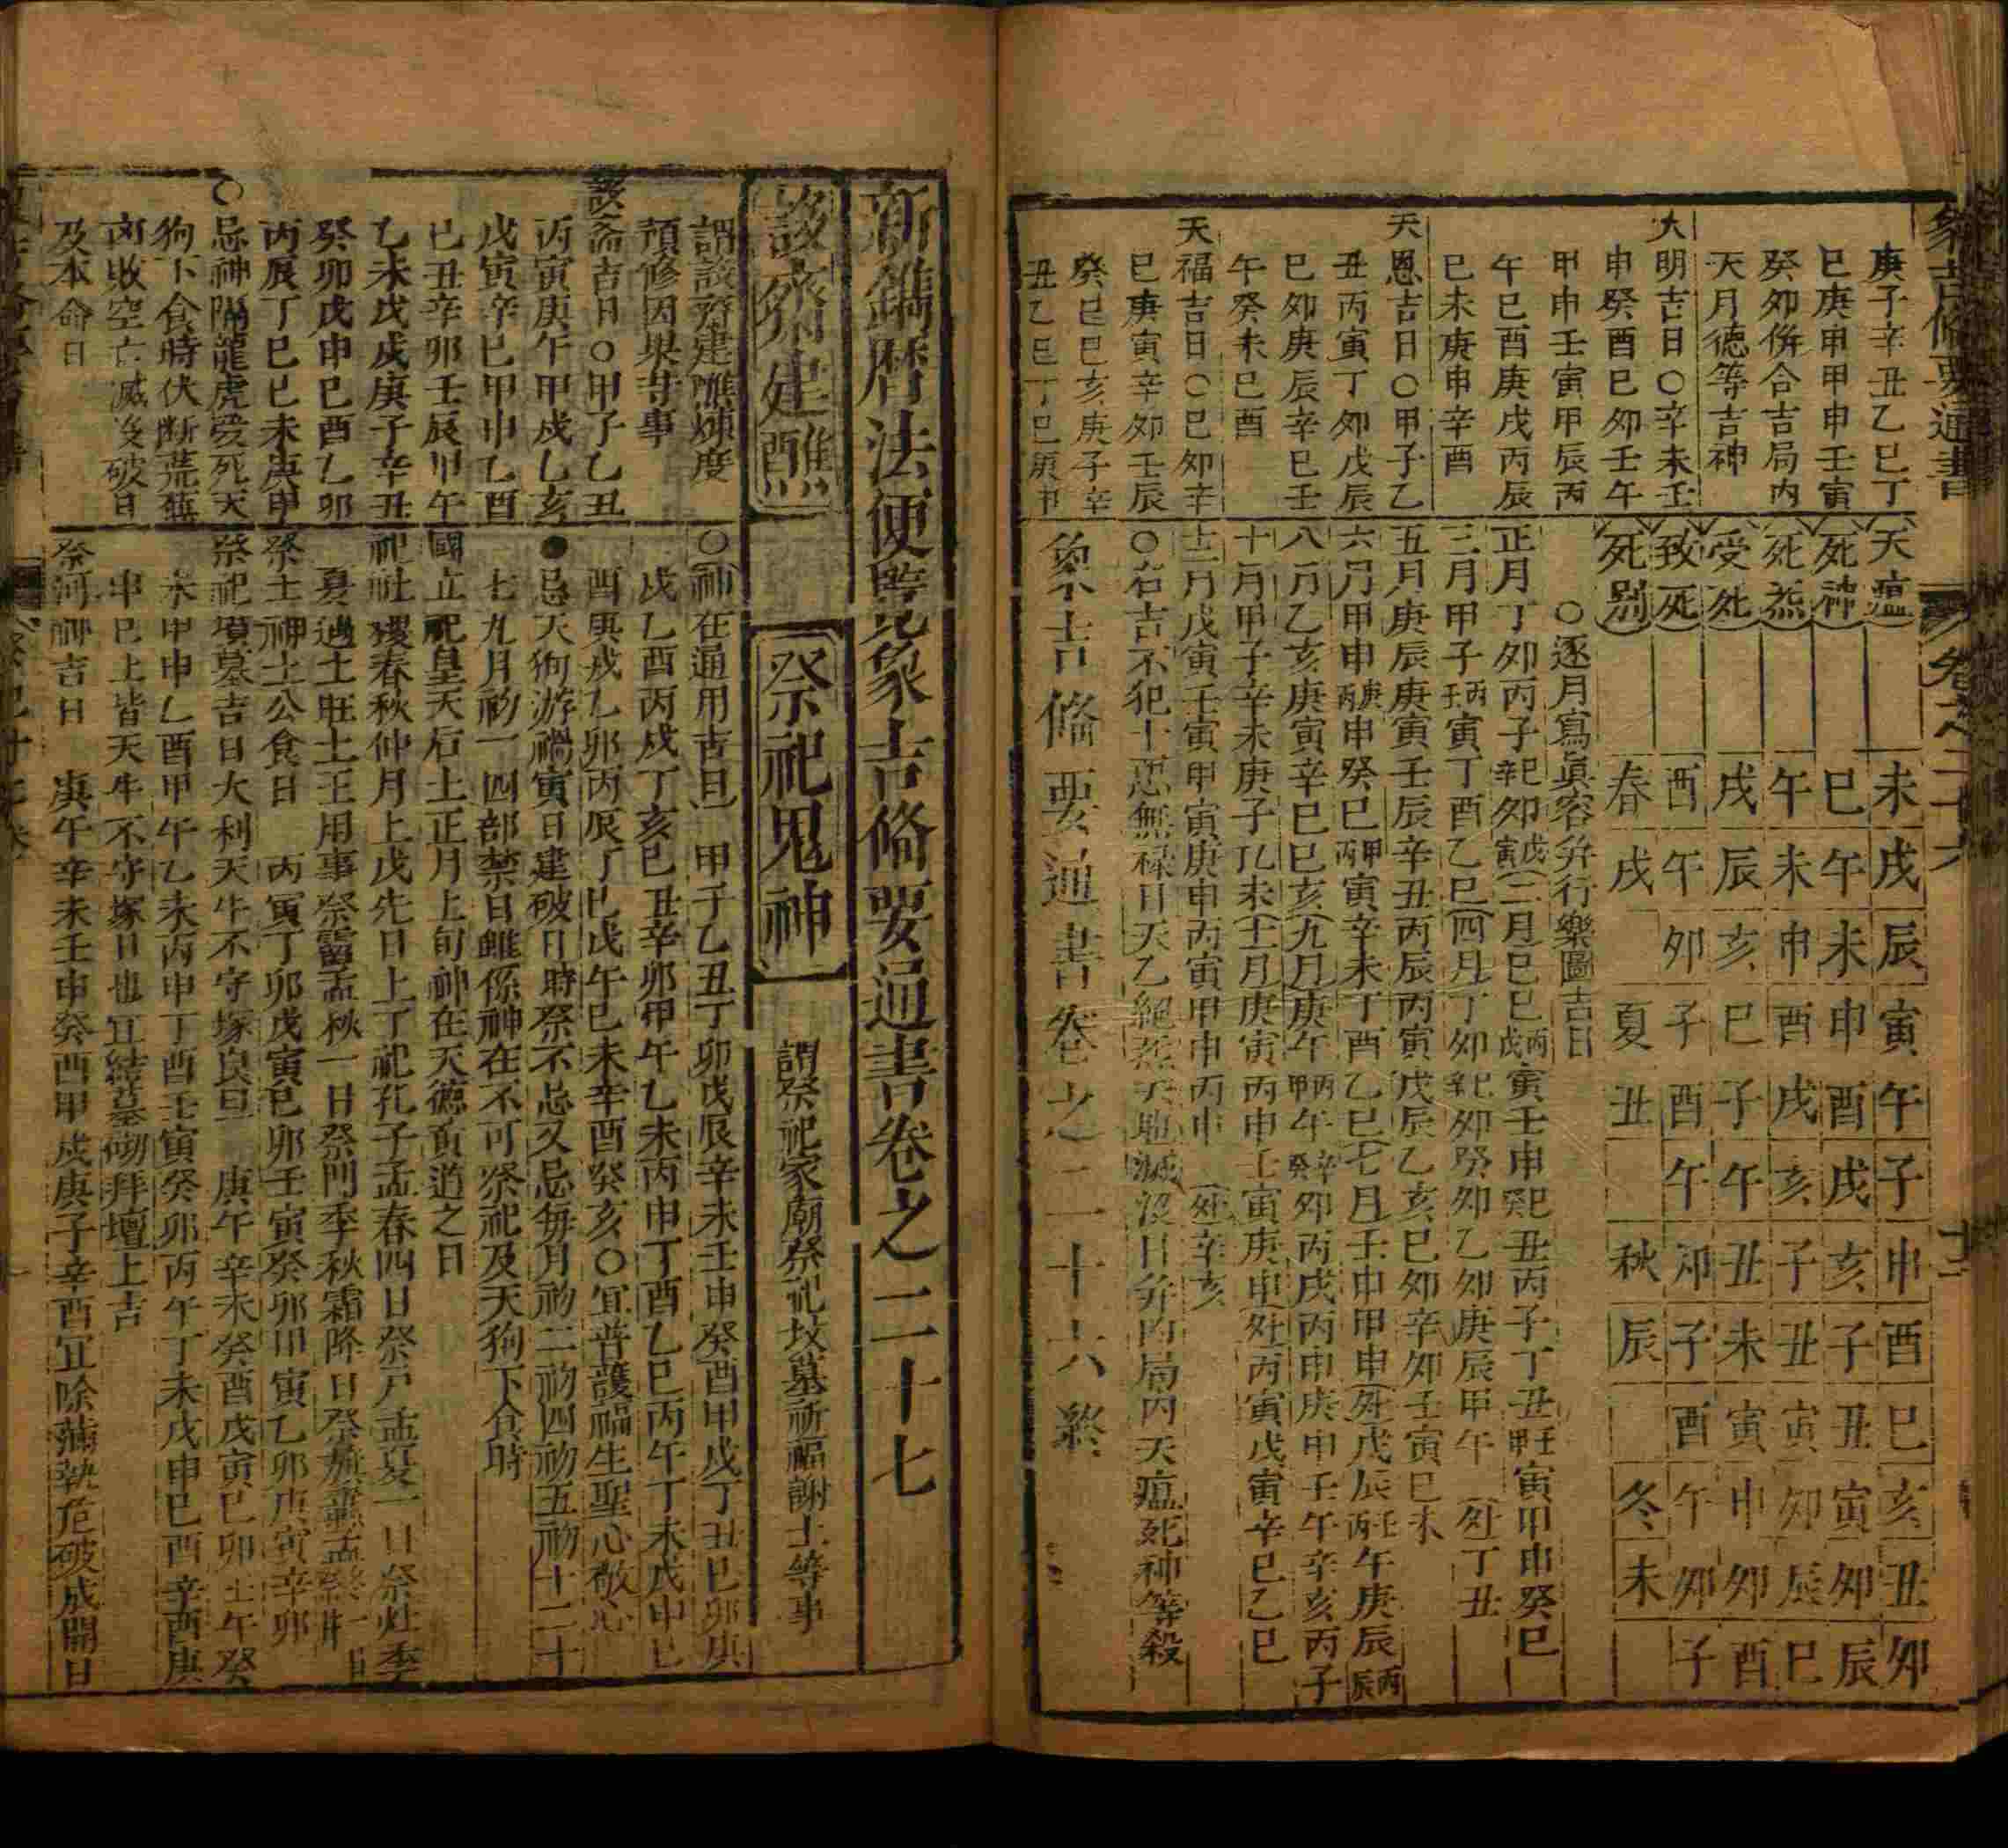 象吉俻要通書
卷之二十六
十三
庚子辛丑乙巳丁
巳庚申甲申壬寅
癸卯倂合吉局内
天月德等吉神
大明吉日○辛未壬
申癸酉巳卯壬午
甲申壬寅甲辰丙
午巳酉庚戌丙辰
巳未庚申辛酉
天恩吉日○甲子乙
丑丙寅丁卯戊辰
巳卯庚辰辛巳壬
午癸未巳酉
天福吉日○巳卯辛
巳庚寅辛卯壬辰
癸巳巳亥庚子辛
丑乙巳丁巳庚申
天瘟 未戌辰寅午子申酉巳亥丑卯
死神 巳午未申酉戌亥子丑寅卯辰
死炁 午未申酉戌亥子丑寅卯辰巳
受死 戌辰亥巳子午丑未寅申卯酉
致死 酉午卯子酉午卯子酉午卯子
死别 春戌 夏丑 秋辰 冬未
○逐月寫眞容并行樂圖吉日
正月丁卯丙子辛巳卯戊寅(二月)巳巳丙戊寅壬申癸巳丑丙子丁丑甲壬寅甲申癸巳
三月甲子丙壬寅丁酉乙巳(四月)丁卯辛巳卯癸卯乙卯庚辰甲午 (外)丁丑
五月庚辰庚寅壬辰辛丑丙辰丙寅戊辰乙亥巳卯辛卯壬寅巳未
六月甲申庚丙申癸巳甲丙寅辛未丁酉乙巳(七月)壬申甲申(外)戊辰壬丙午庚辰丙辰
八月乙亥庚寅辛巳巳亥(九月)庚午丙甲午辛癸卯丙戌丙申庚申壬午辛亥丙子
十月甲子辛未庚子乙未(十一月)庚寅丙申壬寅庚申(外)丙寅戊寅辛巳乙巳
十二月戊寅壬寅甲寅庚申丙寅甲申丙申 (外)辛亥
○右吉不犯十惡無祿日天乙絕炁天地滅沒日并内局内天瘟死神等殺
象吉俻要通書卷之二十六終
新鐫曆法便覽象吉俻要通書卷之二十七
設齋建醮
謂設齋建醮煉度
預修因果等事
設齋吉日○甲子乙丑
丙寅庚午甲戌乙亥
戊寅辛巳甲申乙酉
巳丑辛卯壬辰甲午
乙未戊戌庚子辛丑
癸卯戊申巳酉乙卯
丙辰丁巳巳未庚申
○忌神隔龍虎受死天
狗下食時伏斷荒蕪
收空亡滅沒破日
及本命日
祭祀鬼神
謂祭祀家廟祭祀坟墓祈福謝土等事
○(神在通用吉日) 甲子乙丑丁卯戊辰辛未壬申癸酉甲戌丁丑巳卯庚
戌乙酉丙戌丁亥巳丑辛卯甲午乙未丙申丁酉乙巳丙午丁未戊申巳
酉庚戌乙卯丙辰丁巳戊午巳未辛酉癸亥○宜普護福生聖心敬心
●忌天狗游禍寅日建破日時祭不忌又忌每月初二初四初五初十二十
七九月初一四部禁日雖係神在不可祭祀及天狗下食時
國立祀皇天后土正月上旬神在天德黃道之日
祀社稷春秋仲月上戊先日上丁祀孔子孟春四日祭戶孟夏一日祭灶季
夏遇土旺土王用事祭霤孟秋一日祭門季秋霜降日祭旗纛孟冬一日
祭土神土公食日 丙寅丁卯戊寅巳卯壬寅癸卯甲寅乙卯庚寅辛卯
祭祀墳墓吉日大利天牛不守塚良日 庚午辛未癸酉戊寅巳卯壬午癸
未甲申乙酉甲午乙未丙申丁酉壬寅癸卯丙午丁未戊申巳酉辛酉庚
申巳上皆天牛不守塚日也宜結墓砌拜壇上吉
祭河神吉日 庚午辛未壬申癸酉甲戌庚子辛酉宜除滿執危破成開日